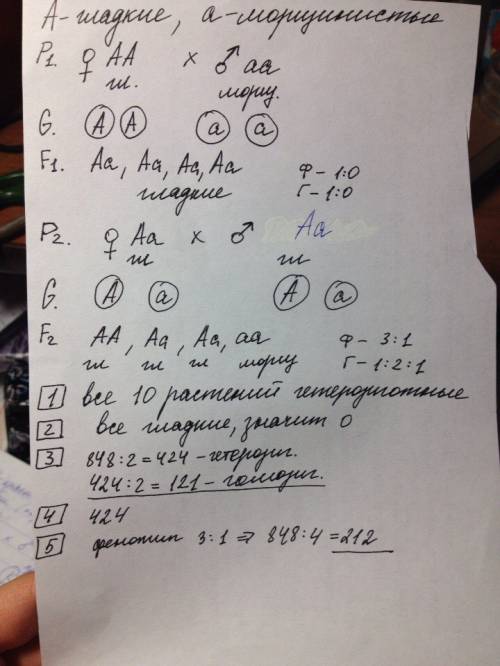 А-гладкие, а-морщинистые
P₁. ♀ АА х ♂ аа
гл. морщ.
G. А А а а
F₁. Аа, Аа, Аа, Аа Ф – 1:0
гладкие Г – 1:0
P₂. ♀ Аа х ♂ Аа
гл гл
G. А а А а
F₂ АА, Аа, Аа, аа Ф – 3:1
гл гл гл морщ Г – 1:2:1
1 все 10 растений гетерозиготные
2 все гладкие, значит 0
3 848:2=424 – гетерозиг.
424:2=121 – гомозиг.
4 424
5 фенотип 3:1 ⇒ 848:4=212